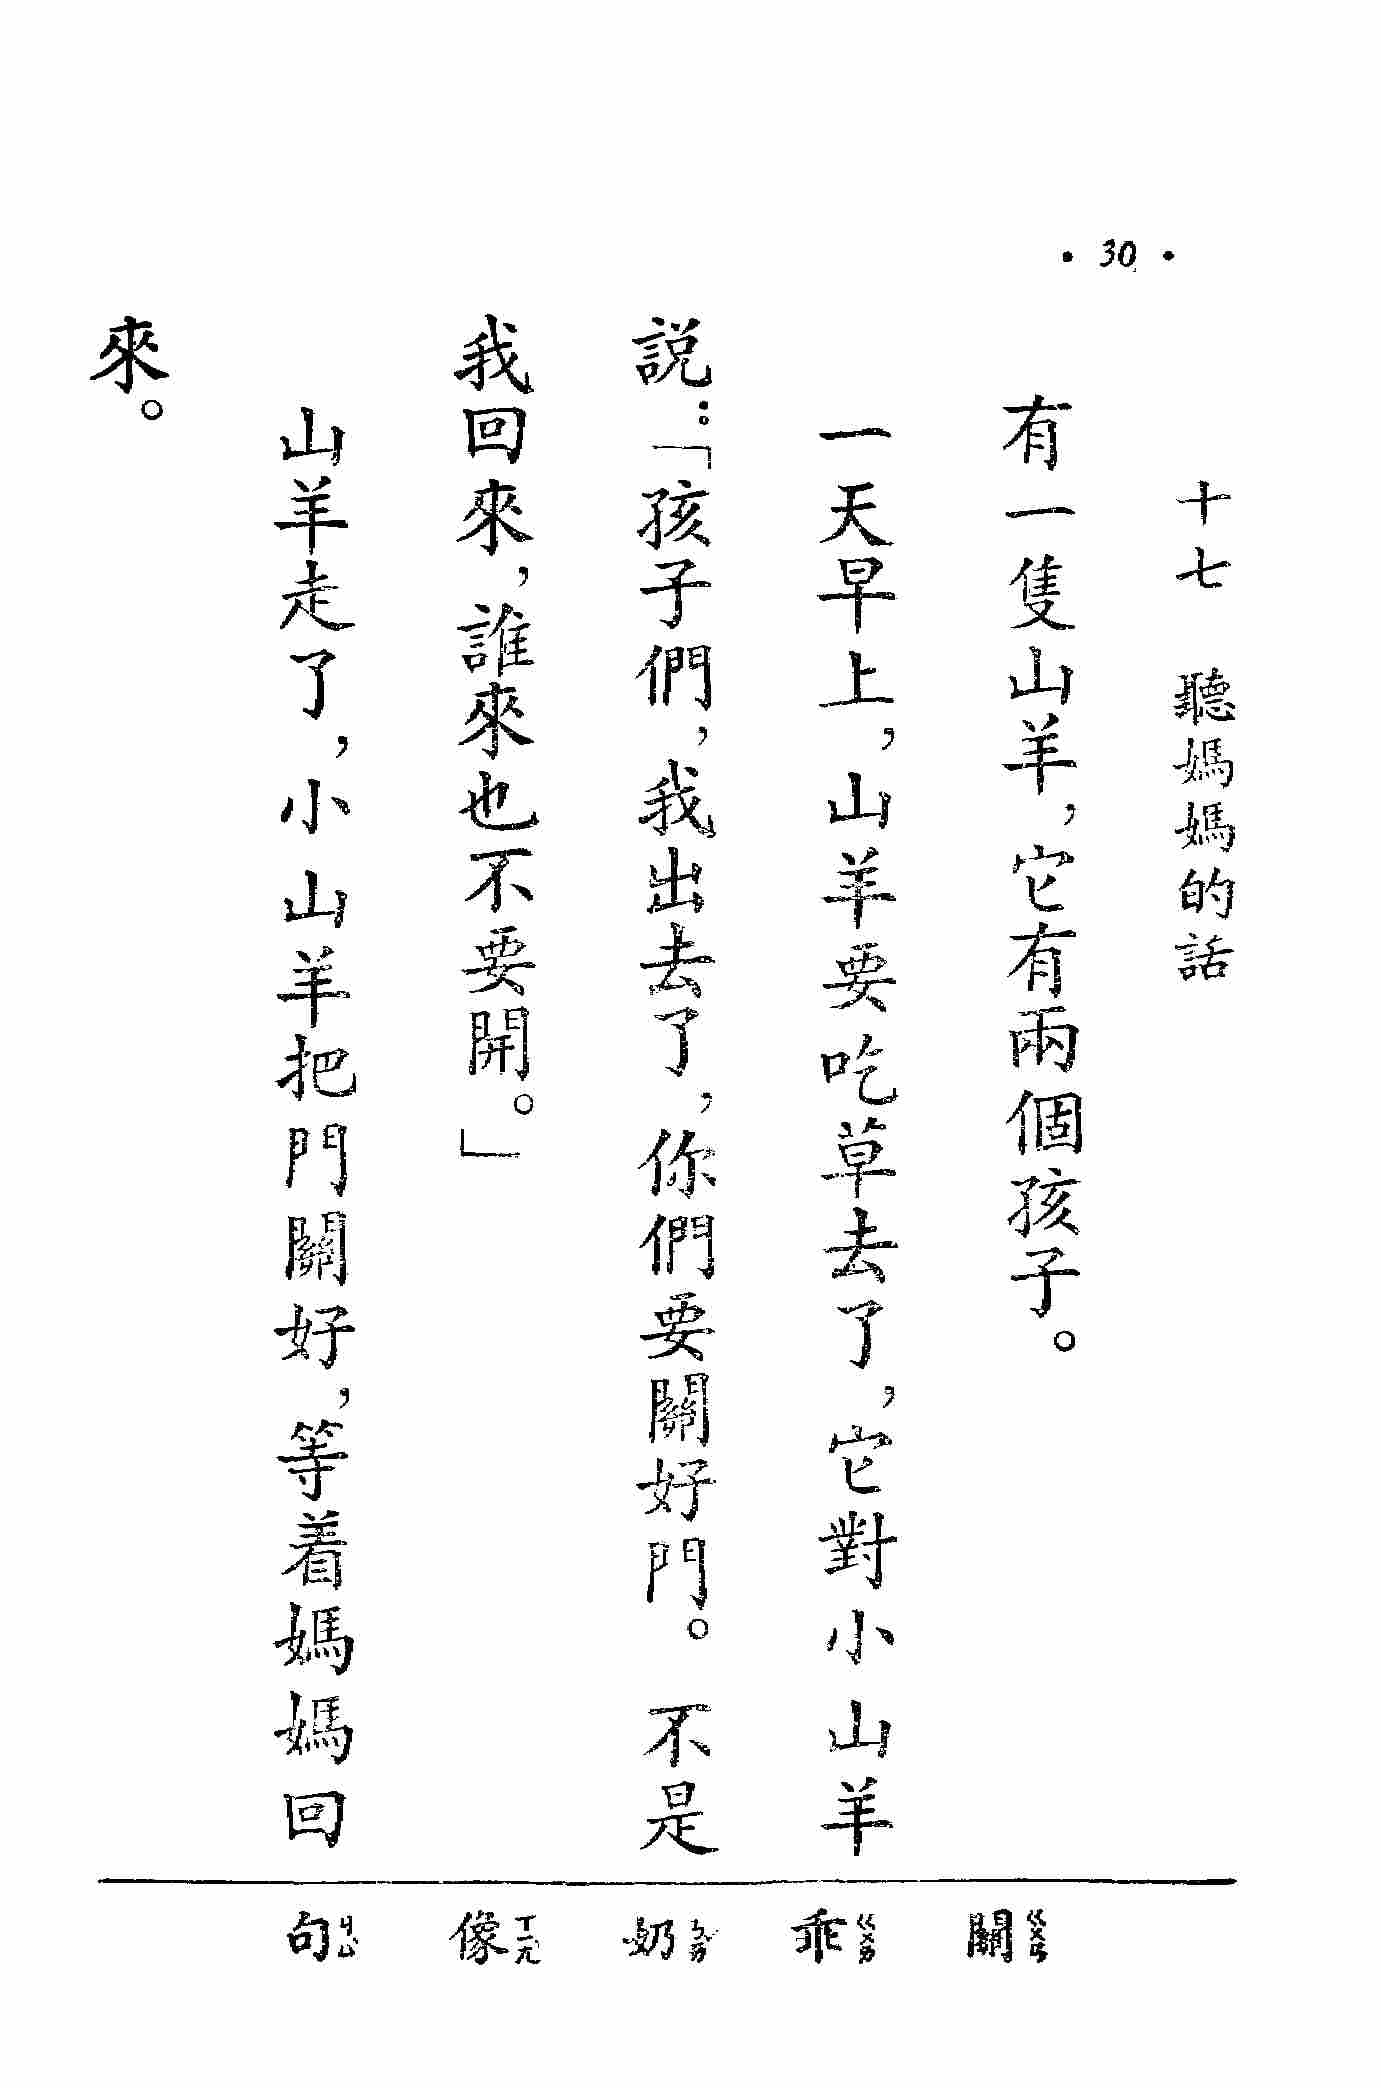 • 30 •
十七 聽媽媽的話
有一隻山羊，它有兩個孩子。
一天早上，山羊要吃草去了，它對小山羊
説：「孩子們，我出去了，你們要關好門。不是
我回來，誰來也不要開。」
山羊走了，小山羊把門關好，等着媽媽回
來。
關ㄍㄨㄢ
乖ㄍㄨㄞ
奶ㄋㄞˇ
像ㄒㄧㄤ
句ㄐㄩ